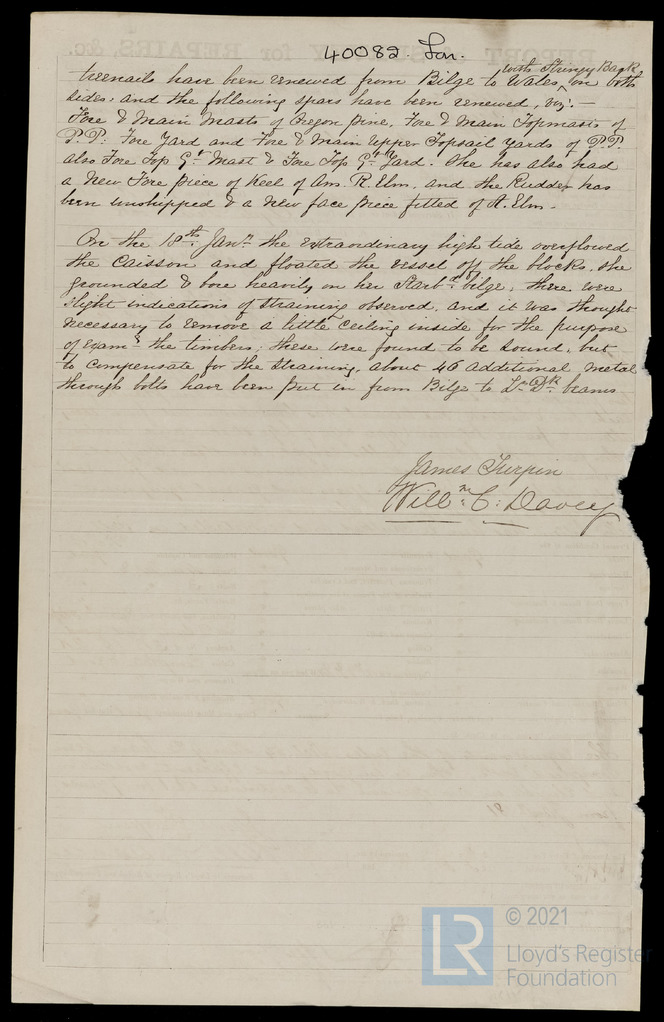 40082 Lon.
with Stringy Bark
treenails have been renewed from Bilge to Wales ^ on both
sides, and the following spars have been renewed, viz:—
Fore & Main Masts of Oregon pine, Fore & Main Topmasts of
P.P: Fore Yard and Fore & Main Upper Topsail Yards of P.P.
also Fore Top Gt Mast & Fore Top Gt Yard. She has also had
a New Fore piece of Keel of Am. R. Elm. and the Rudder has
been unshipped & a new face piece fitted of A. Elm.
On the 18th Jany the extraordinary high tide overflowed
the caisson and floated the vessel off the blocks, she
grounded & bore heavily on her Starbd bilge, there were
slight indications of straining observed, and it was thought
necessary to remove a little ceiling inside for the purpose
of examg the timbers; these were found to be sound, but
to compensate for the straining, about 46 additional metal
through bolts have been put in from Bilge to Lr Dk beams
James Turpin
Willm: C: Davey
© 2021
LR
Lloyd's Register
Foundation